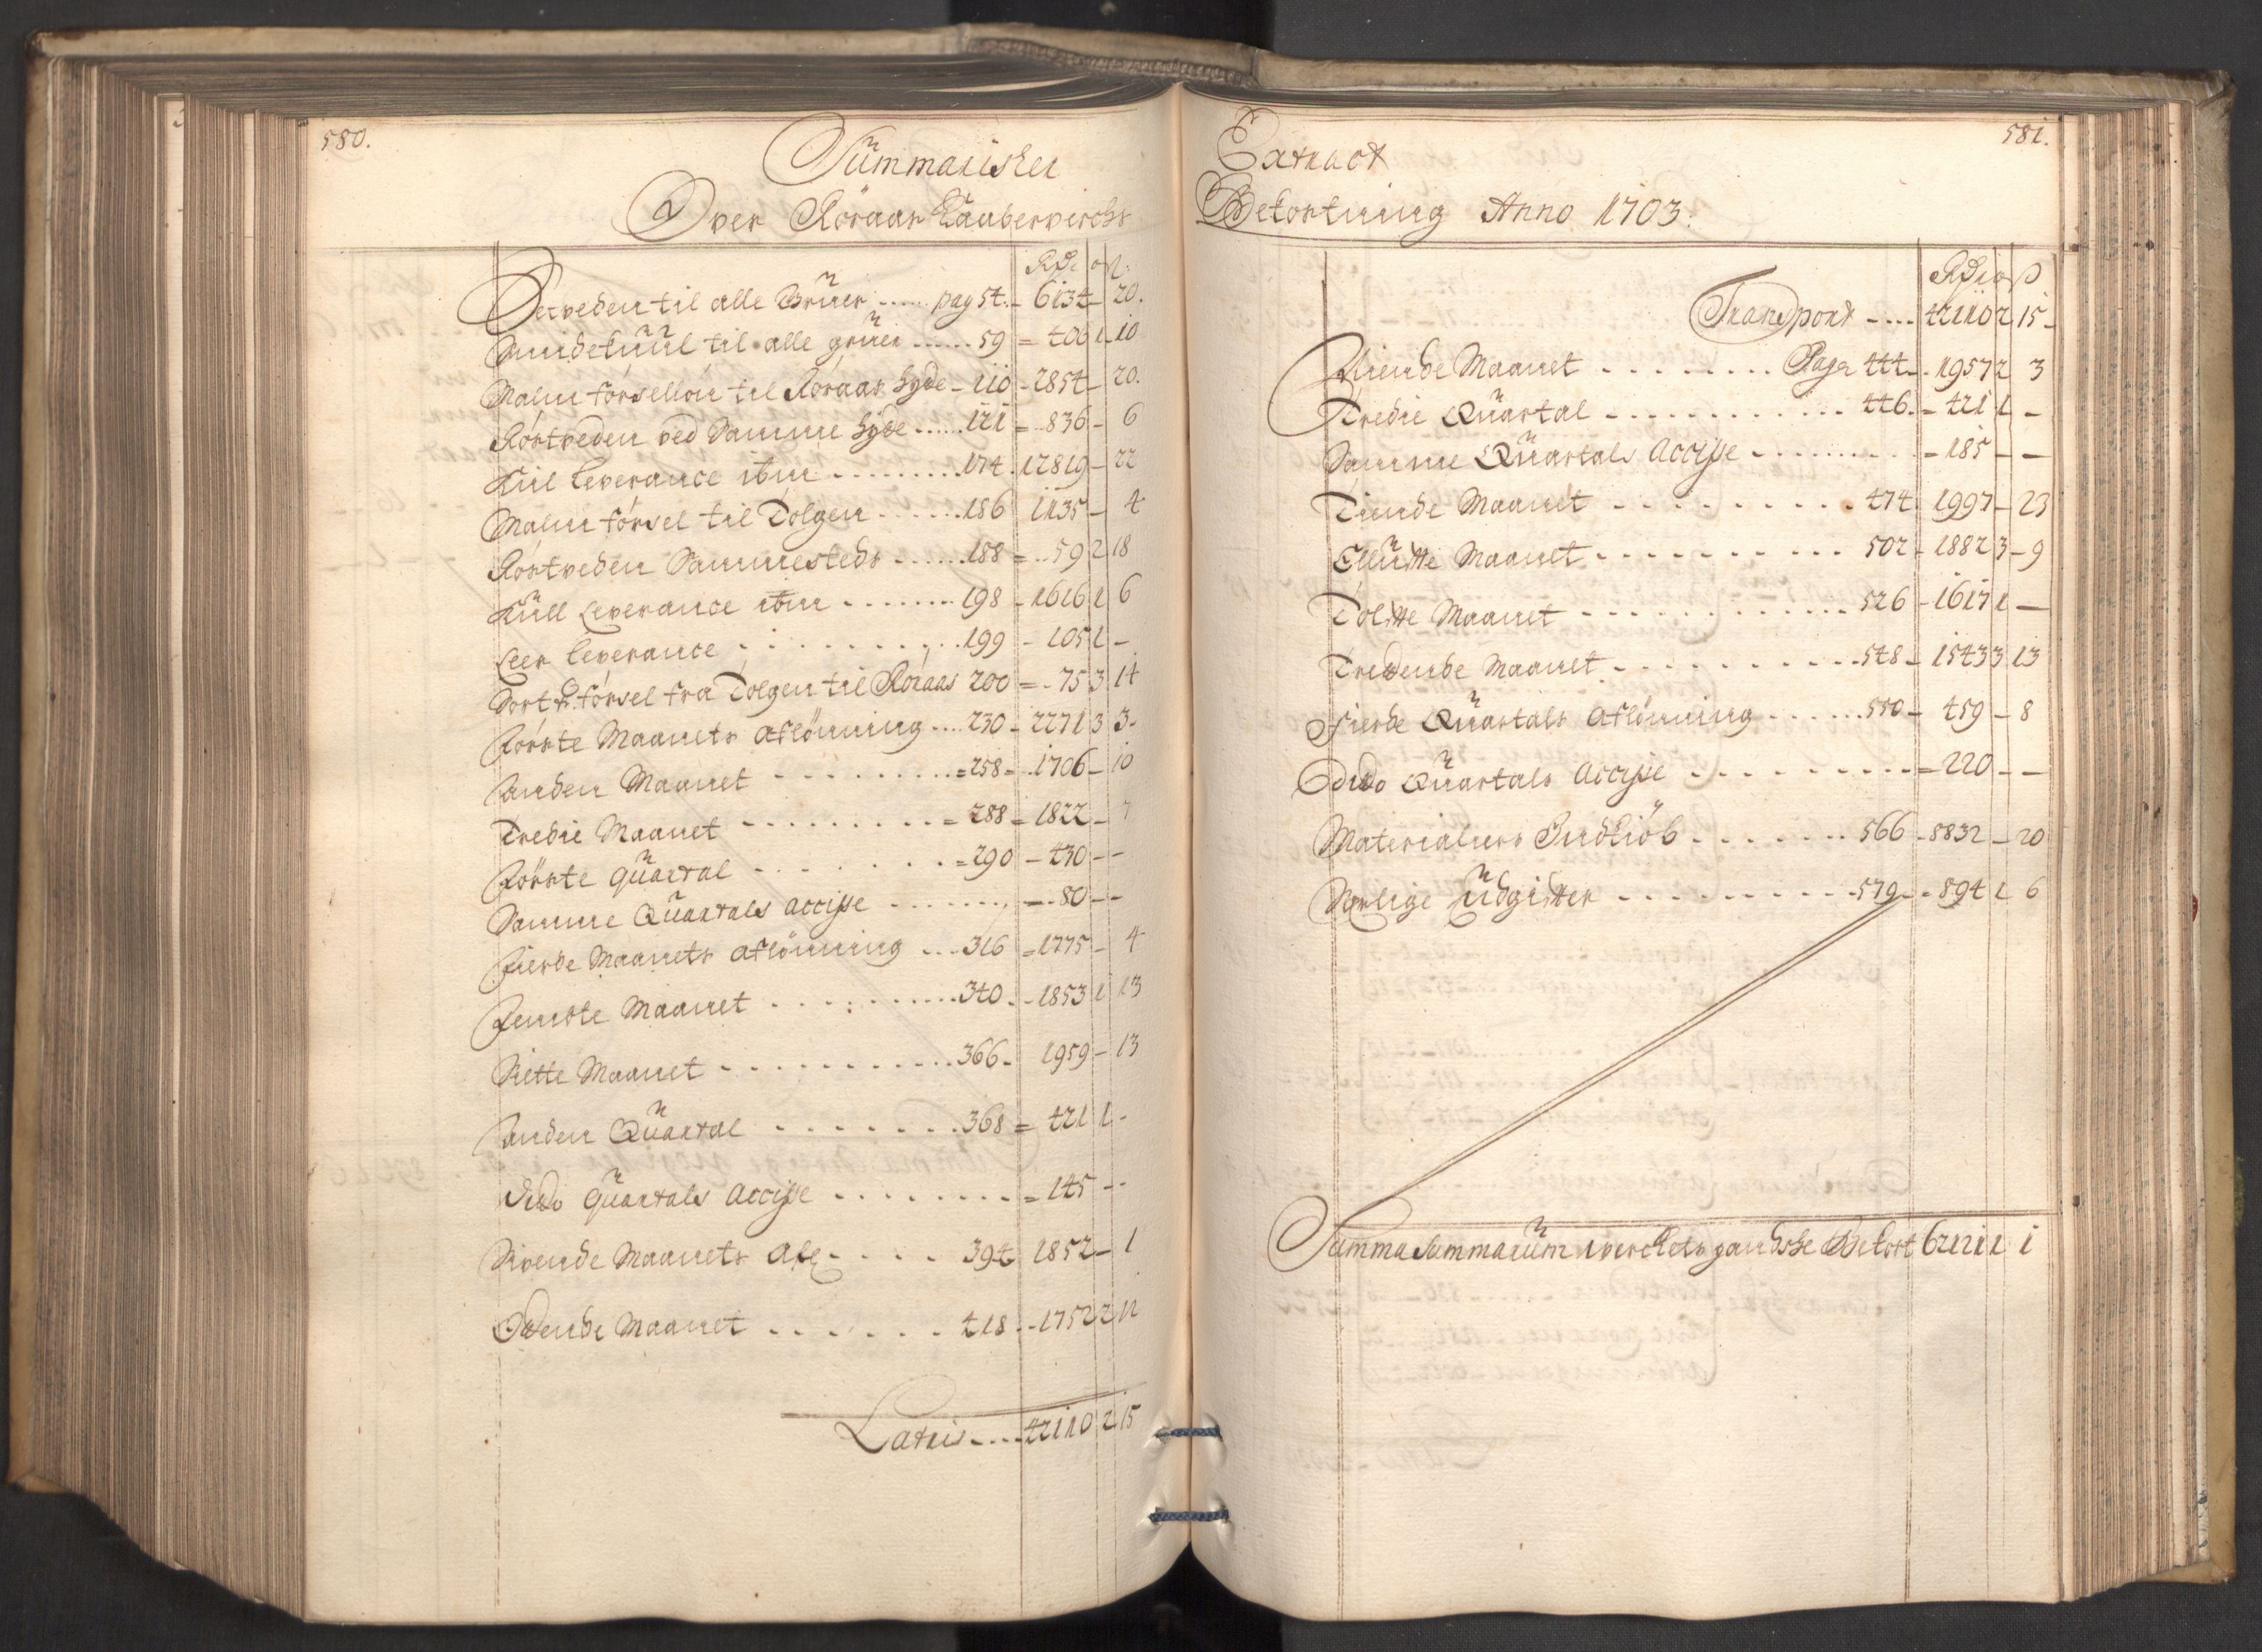 580.
Summarisker
Over Röraas Kaaberverchs
Rdr. ort ß.
Setveden til alle Gruer ...... pag 54. - 6134 - 20.
Smidekuul til alle gruer ...... 59 = 406 1 10
Malm förselloen til Röraas hytte - 110 - 2854 - 20.
Röstveden ved Samme hytte ...... 121 = 836 - 6
Kul leverance ibm ......... 174 . 12819 - 22
Malm försel til Tolgen ...... 186 1135 - 4
Röstveden Sammesteds ...... 188 = 59 2 18
Kull Leverance ibm ........ 198 - 1616 1 6
Leer leverance ......... 199 - 105 1 -
Sort k: försel fra Tolgen til Röraas 200 = 75 3 14
Förste Maanets aflönning .... 230 - 2271 3 3 -
Anden Maanet ......... = 258 = 1706 - 10
Tredie Maanet ......... = 288 = 1822 - 7
Förste quartal ....... = 290 - 430 - -
Samme Quartals accisse ....... - 80 - -
Fierde Maanets aflönning .... 316 = 1775 - 4
Femste Maanet .......... 340 . - 1853 1 13
Siette Maanet ............ 366 - 1959 - 13
Anden Quartal ....... 368 = 421 1 -
Dito quartals accisse ......... = 145 - -
Sivende Maanets Afl .... 394 1852 - 1
Ottende Maanet ....... 418 .. 1752 2 12
Latris .... 42110 2 15
581.
Extract
Bekostning Anno 1703.
Rdr ort ß
Transport .... 42110 2 15 -
Niende Maanet ........ Pagr 444 - 1957 2 3
Tredie Quartal ............ 446. = 421 1 -
Samme Quartals Accisse ......... = 185 - -
Tiende Maanet ......... 474 1997 - 23
Ellufte Maanet .......... 502 - 1882 3 - 9
Tolfte Maanet ............. 526 - 1617 1 -
Trettende Maanet .......... 548 - 1543 3 13
Fierde Quartals Aflönning ...... 550 - 459 - 8
Ditto Quartals Accisse .......... = 220 - -
Materialiers Indkiöb ....... 566 - 8832 - 20
Særlige Udgifter ......... 579 - - 894 1 6
Summa Summarum verckets gandske Bekost 62121 1 1